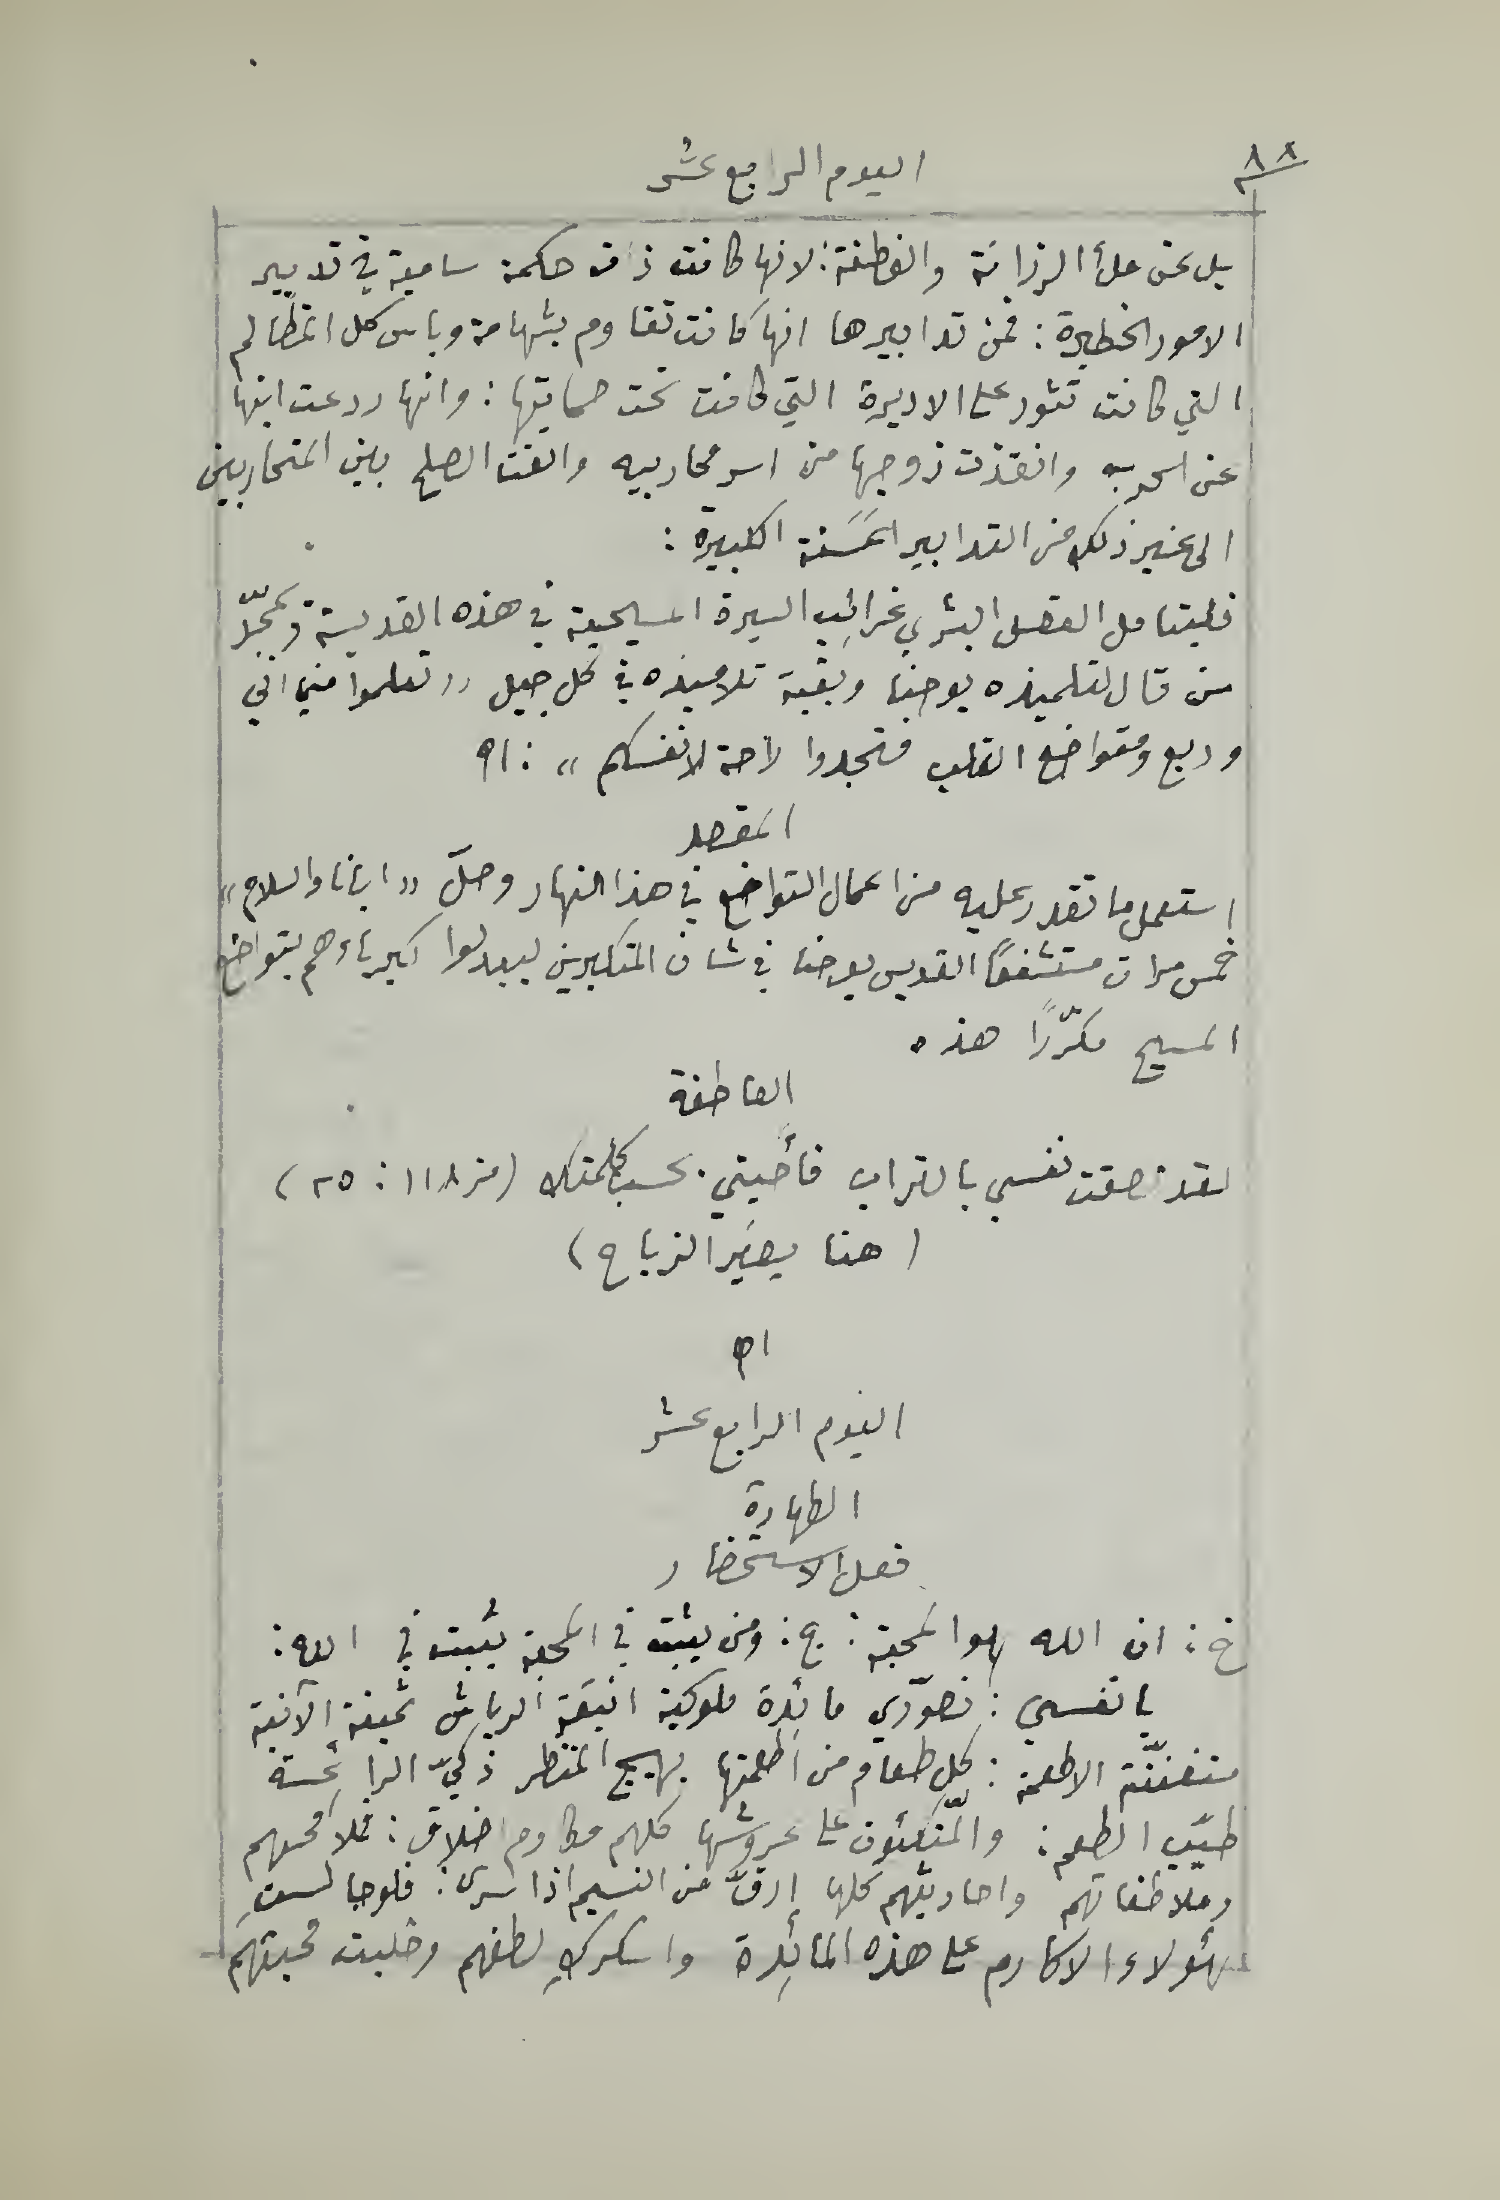 ٨٨
اليوم الرابع عشر
بل عن ملأ الرزانة والفطنة: لانها كانت ذات حكمة سامية في تدبير
الامور الخطيرة: فمن تدابيرها انها كانت تقاوم بشهامة وباس كل المظالم
التي كانت تثور على الاديرة التي كانت تحت حمايتها: وانها ردعت ابنها
عن الحرب وانقذت زوجها من اسر محاربيه والقت الصلح بين المتحاربين
الى غير ذلك من التدابير الحَسَنة الكبيرة:
فليتامل العقل البشري غرائب السيرة المسيحية في هذه القديسة وَيمجّد
من قال لتلميذه يوحنا وبقية تلاميذه في كل جيل «تعلموا مني اني
وديع ومتواضع القلب فتجدوا راحة لانفسكم»: اه
المقصد
استعمل ما تقدر عليه من اعمال التواضع في هذا النهار وصلّ «ابانا والسلام»
خمس مرات مستشفعًا القديس يوحنا في شان المتكبرين ليبدلوا كبرياءهم بتواضع
المسيح مكرّرًا هذه
العاطفة
لقد لصقت نفسي بالتراب فأَحيني بحسب كلمتك (مز ١١٨: ٢٥)
(هنا يصير الزياح)
اه
اليوم الرابع عشر
الطهارة
فعل الاستحضار
خ: ان الله هو المحبة: ج: ومن يثبت في المحبة يثبت في الله:
يا نفسي: تصوّري مائدة ملوكية انيقة الرياش ثمينة الآنية
متفننّة الاطعمة: كل طعام من اطعمتها بهيج المنظر ذكيّ الرائحة
طيّب الطعم: والمتّكئون على عروشها كلهم مكارم اخلاق: فملامحهم
وملاطفاتهم واحاديثهم كلها ارقّ من النسيم اذا سرى: فلو جالستِ
هٰؤلاء الاكارم على هذه المائِدة واسكركِ لطفهم وخلبت محبتهم